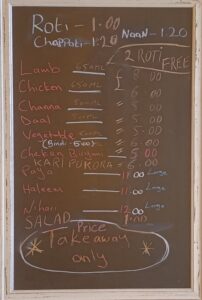 Roti - 1.00
Chappati - 1.20 Naan - 1.20
2 ROTI FREE
Lamb 650ML £ 8.00
Chicken 650ML " 8.00
Channa 500ML "
Daal 500ML "
Vegetable " 5.00
(Bindi - 6.00)
Chicken Biryani 5.00
KARI PUKORA 6.00
Paya 11.00 Large
Haleem 11.00 Large
Nihari 12.00 Large
SALAD 1.00
Price
* Takeaway *
only